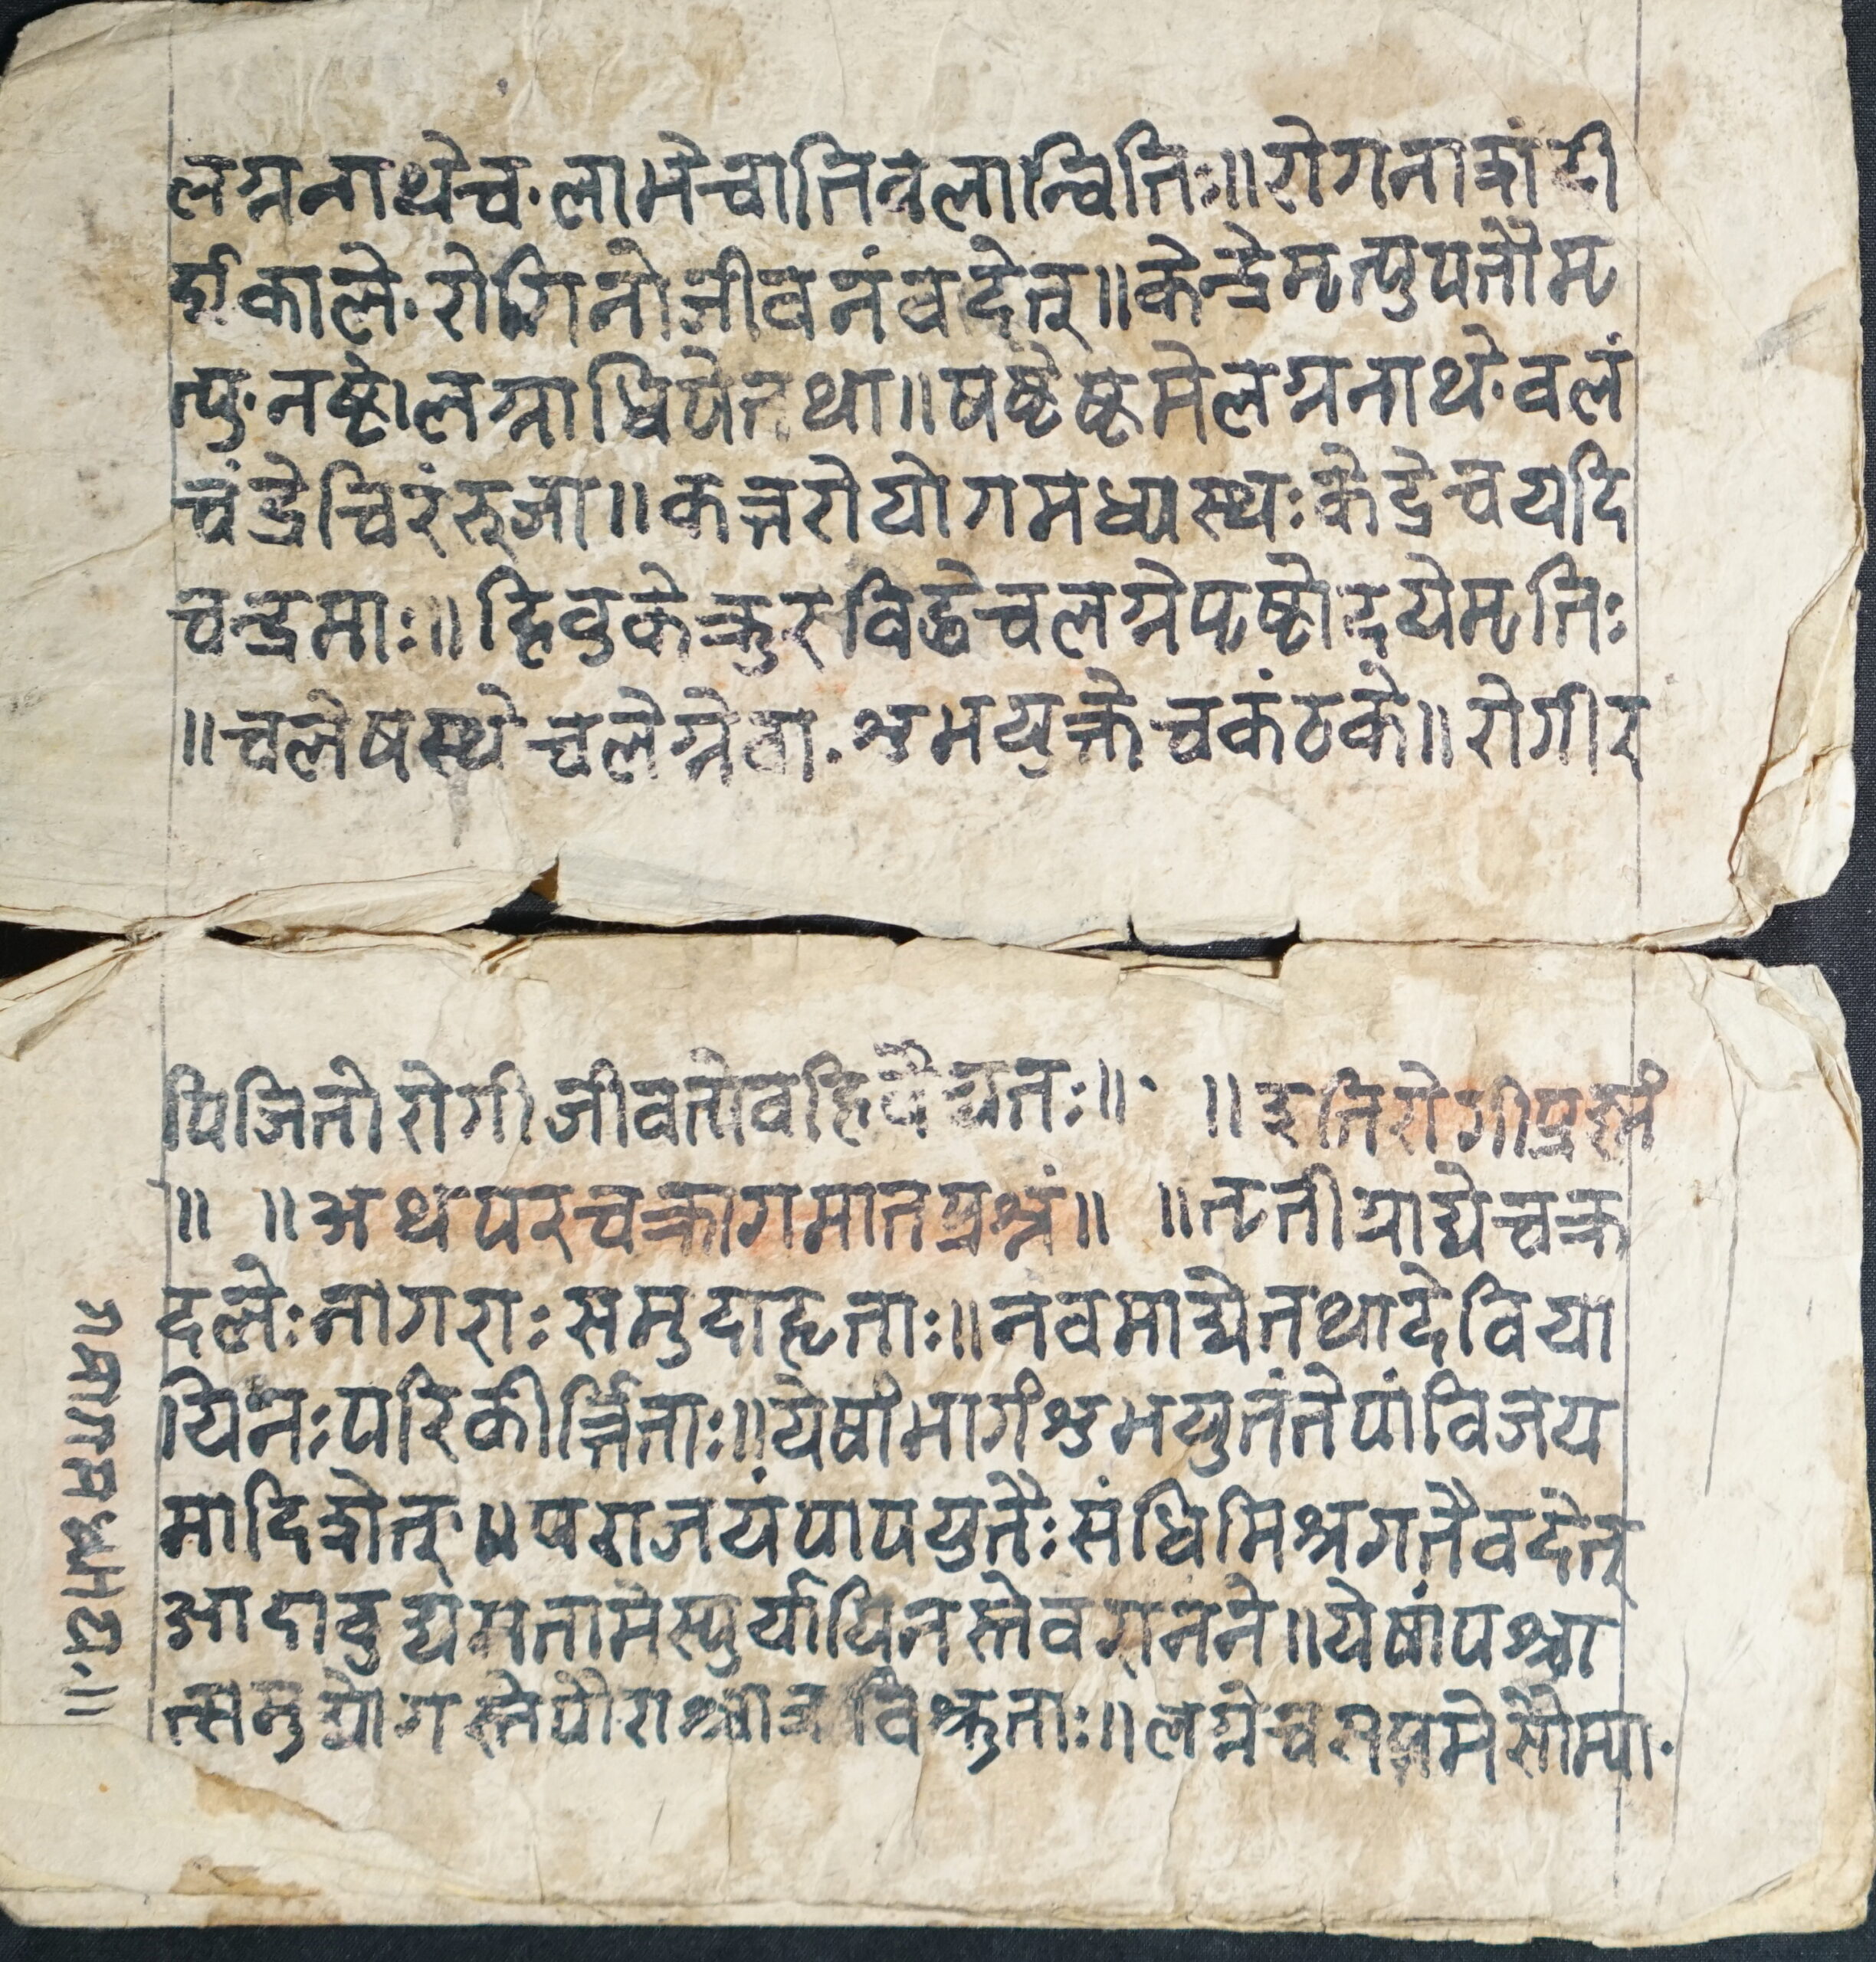 लग्ननाथेच.लाभेचातिवलान्वितिः॥रोगनाशंदी
र्घकाले.रोगिनोजीवनंवदेत्॥केन्द्रेमृत्युपतौमृ
त्युनष्टे।लग्नाधिपेतथा॥षष्टेष्टमेलग्ननाथे.वलं
चंद्रेचिरंरुजा॥कत्तरोयोगमध्यस्थःकेद्रेचयदि
चन्द्रमाः॥हिवुकेक्रुरविद्धेचलग्नेपृष्टोदयेमृतिः
॥चलेषस्थेचलेग्नेवा.शुभयुक्तेचकंठके॥रोगीर
पिजितोरोगीजीवतोवहिवैद्यतः॥ ॥इतिरोगीप्रश्नं
॥ ॥अथपरचक्रागमातप्रश्नं॥ ॥तृतीयाद्येचक्र
दलेःनागराःसमुदाहृताः॥नवमाद्येतथादेविया
यिनःपरिकीर्त्तिताः॥येषांमार्गंशुभयुतंतेषांविजय
मादिशेत्॥पराजयंपापयुतैःसंधिमिश्रगतैवदेत्
आदावुद्यमतामेस्युर्यायिनस्तेवरानने॥येषांपश्चा
त्समुद्योगस्तेपौराश्चात्रविश्रुताः॥लग्नेचसप्तमेसौम्या.